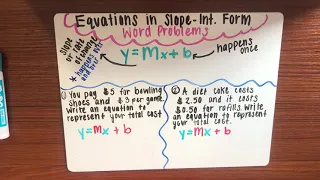 Equations in Slope-Int. Form
Word Problems
slope
or rate of change
* happens over
and over
y=Mx+b
happens
once
① You pay $5 for bowling
shoes and $3 per game.
write an equation to
represent your total cost
y=Mx + b
② A diet coke costs
$2.50 and it costs
$0.50 for refills. Write
an equation to represent
your total cost.
y=Mx + b